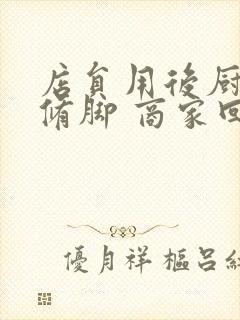 店員用後厨
脩脚 商家回
優月祥 樞呂紅